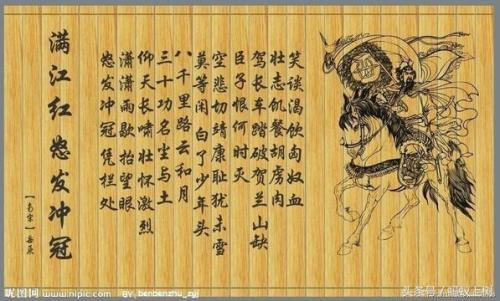 满江红 怒发冲冠
【南宋】岳飞
怒发冲冠凭栏处
潇潇雨歇抬望眼
仰天长啸壮怀激烈
三十功名尘与土
八千里路云和月
莫等闲白了少年头
空悲切靖康耻犹未雪
臣子恨何时灭
驾长车踏破贺兰山缺
壮志饥餐胡虏肉
笑谈渴饮匈奴血
昵图网
www.nipic.com BY: benbenzhu_zyj
头条号/蚂蚁上网